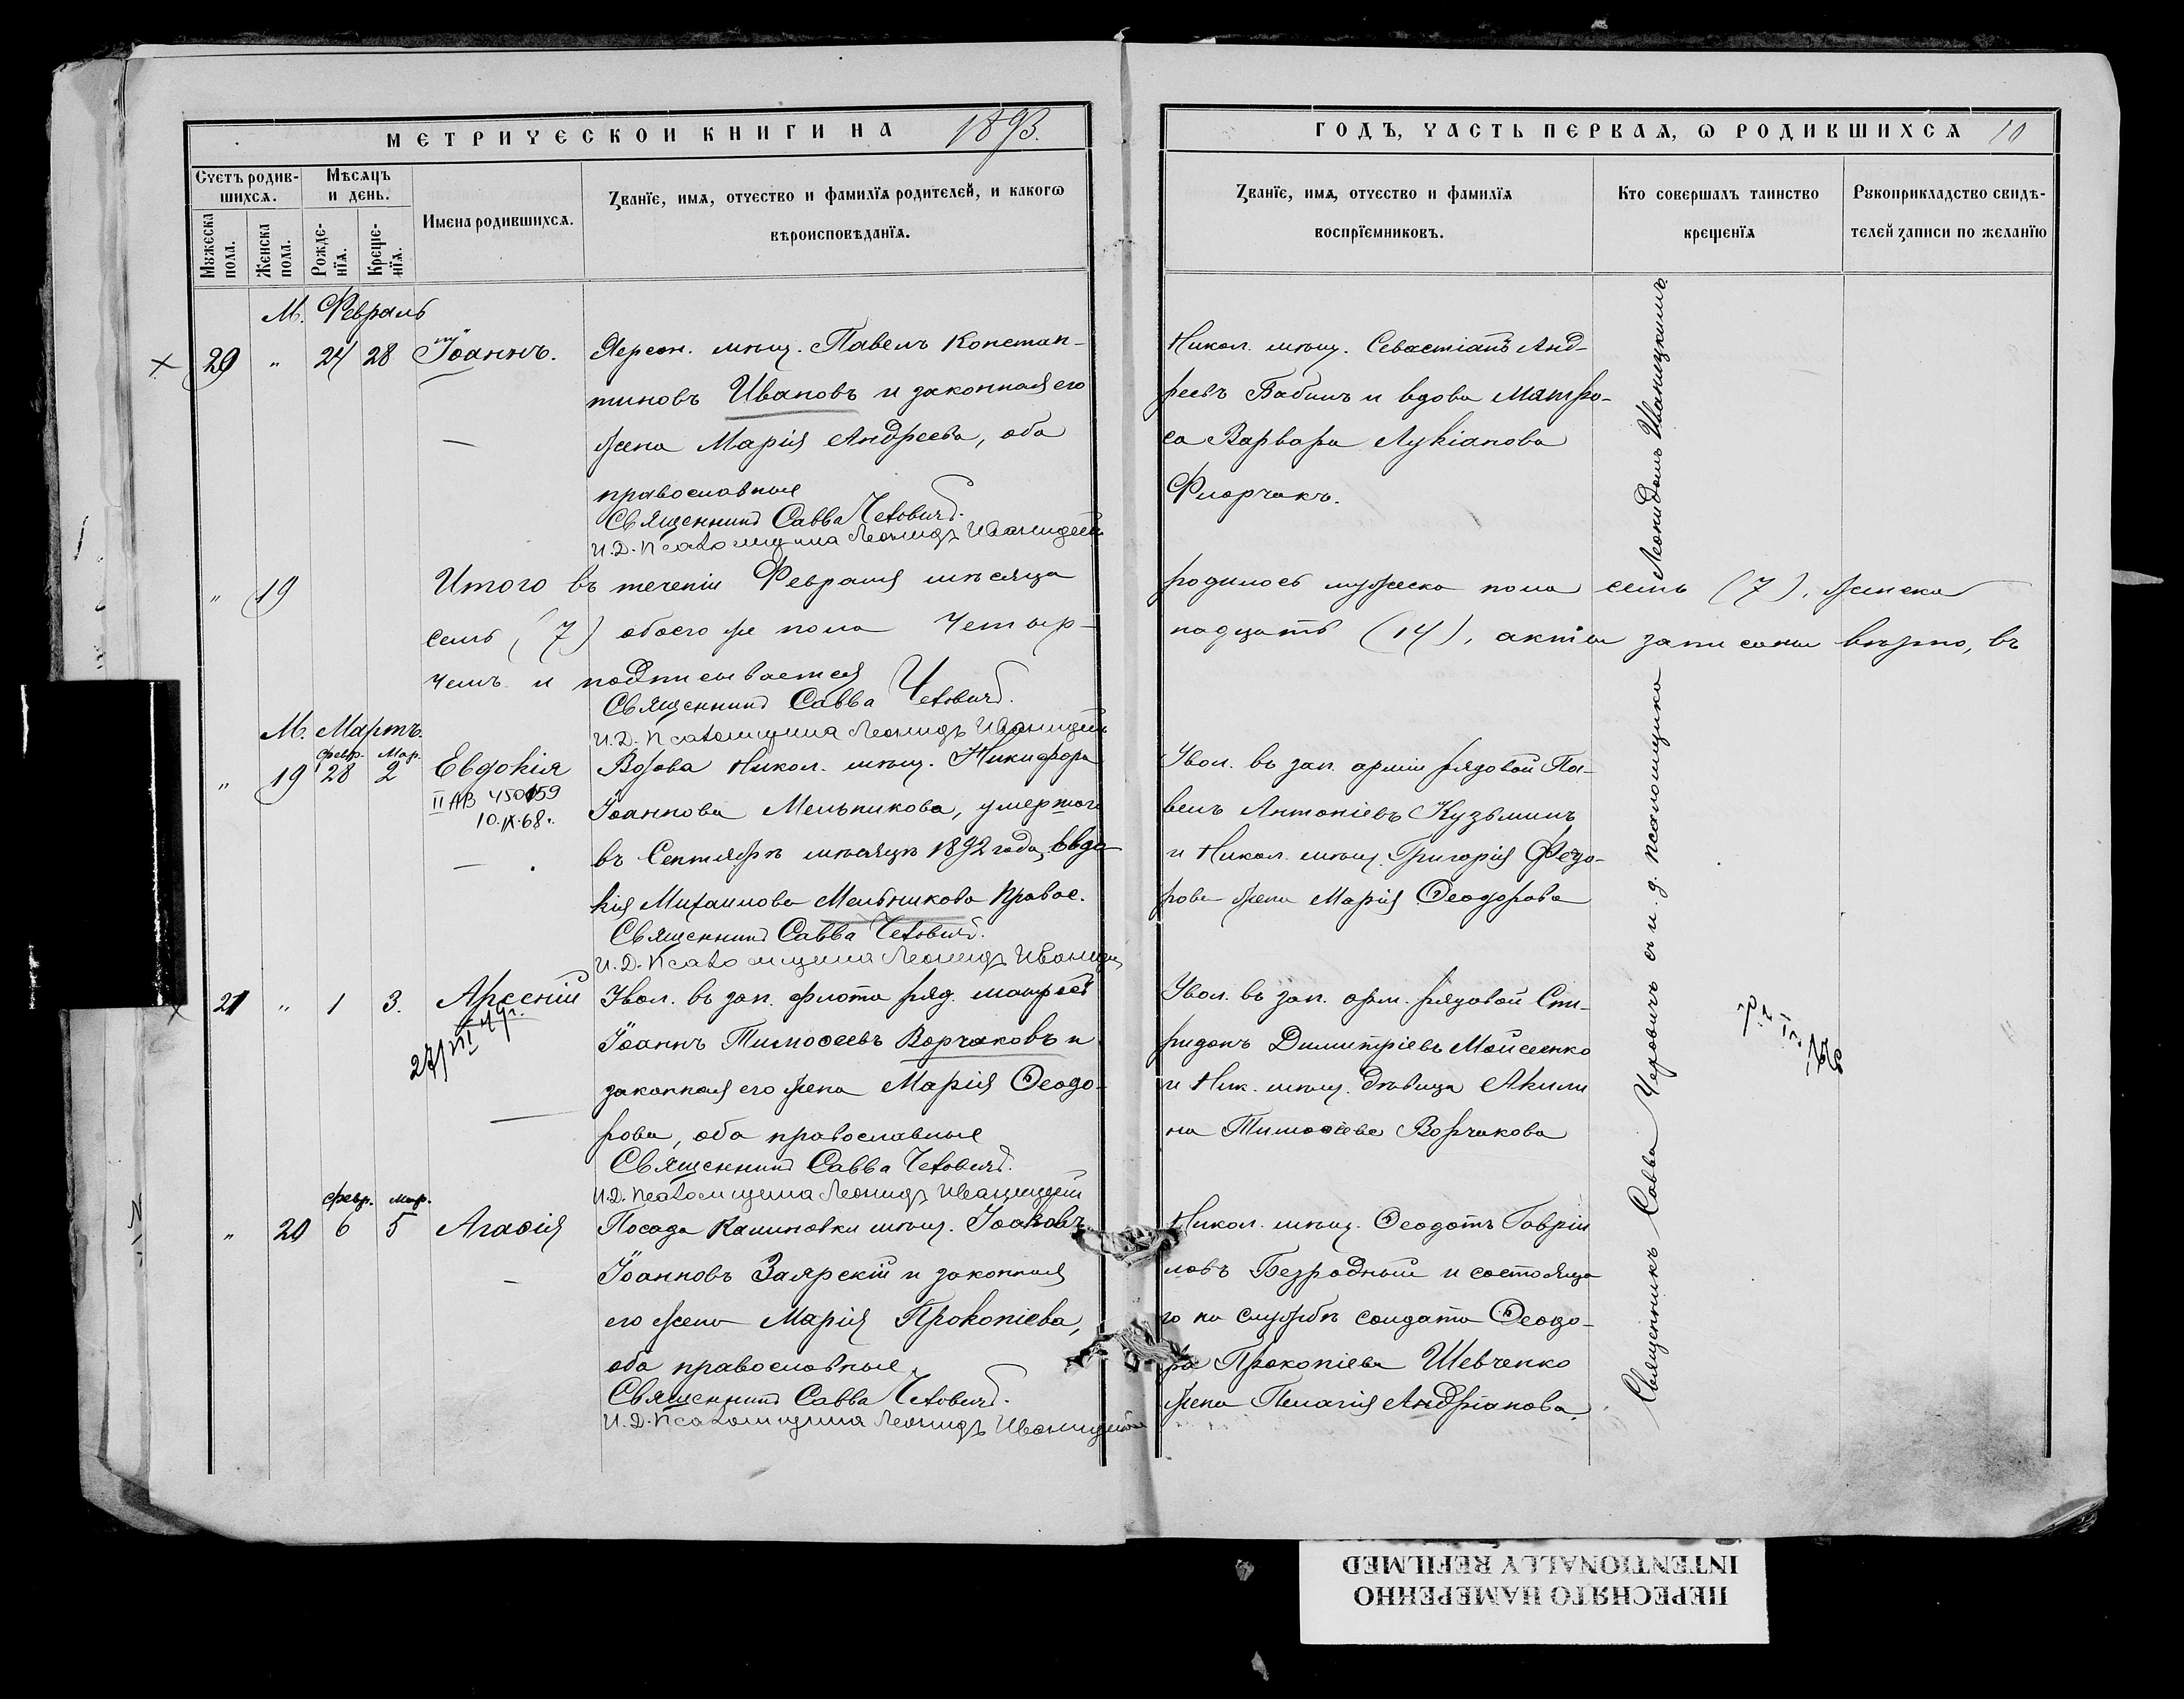 МЕТРИЧЕСКОЙ КНИГИ НА 1893.
ГОДЪ, ЧАСТЬ ПЕРВАѦ, Ѡ РОДИВШИХСѦ 10
Счетъ родив-
шихсѧ.
Мѣсѧцъ
и день.
Мꙋжеска
пола.
Женска
пола.
Рожде-
нїѧ.
Креще-
нїѧ.
Имена родившихсѧ.
Званїе, имѧ, отчество и фамилїѧ родителей, и какогѡ
вѣроисповѣданїѧ.
Званїе, имѧ, отчество и фамилїѧ
воспрїемниковъ.
Кто совершалъ таинство
крещенїѧ
Рꙋкоприкладство свидѣ-
телей записи по желанїю
М. Февраль
20 " 24 28 Іоаннъ. Херсон. мѣщ. Павелъ Констан-
тиновъ Ивановъ и законная его
жена Марія Андреева, оба
православные
Священникъ Савва Чехович.
И.Д. Псаломщика Леонидъ Иваницкій
Никол. мѣщ. Севастіанъ Анд-
реевъ Бабинъ и вдова матро-
са Варвара Лукіанова
Флорчакъ.
" 19 Итого въ теченіи Февраля мѣсяца родилось мужеска пола семь (7), женска
семь (7) обоего же пола четыр- надцать (14), акты записаны вѣрно, въ
чемъ и подписывается
Священникъ Савва Чехович.
И.Д. Псаломщика Леонидъ Иваницкій
М. Мартъ.
февр. Мар.
" 19 28 2 Евдокія
II АВ 450159
10.IX.68г.
Вдова Никол. мѣщ. Никифора
Іоаннова Мельникова, умершаго
въ Сентябрѣ мѣсяцѣ 1892 года, Евдо-
кія Михаилова Мельникова правос.
Священникъ Савва Чехович.
И.Д. Псаломщика Леонидъ Иваницкій
Увол. въ зап. арміи рядовой Па-
велъ Антоніевъ Кузьминъ
и Никол. мѣщ. Григорія Федо-
рова жена Марія Ѳеодорова
21 " 1 3. Арсеній
Увол. въ зап. флота ряд. матросъ
Іоаннъ Тимоѳеевъ Ворчаковъ и
законная его жена Марія Ѳеодо-
рова, оба православные
Священникъ Савва Чехович.
И.Д. Псаломщика Леонидъ Иваницкій
Увол. въ зап. арм. рядовой Спи-
ридонъ Димитріевъ Мойсеенко
и Ник. мѣщ. дѣвица Акили
на Тимоѳеева Ворчакова
февр. мар.
" 20 6 5 Агаѳія
Посада Калиновки мѣщ. Іоаковъ
Іоанновъ Заярскій и законная
его жена Марія Прокопіева,
оба православные.
Священникъ Савва Чехович.
И.Д. Псаломщика Леонидъ Иваницкій
Никол. мѣщ. Ѳеодотъ Гаврiи
ловъ Безродный и состояща
го на службѣ солдата Ѳеодо-
ра Прокопіева Шевченко
жена Пелагія Андріанова.
Священникъ Савва Чеховичъ съ и. д. псаломщика Леонидомъ Иваницкимъ
ПЕРЕСНЯТО НАМЕРЕННО
INTENTIONALLY REFILMED